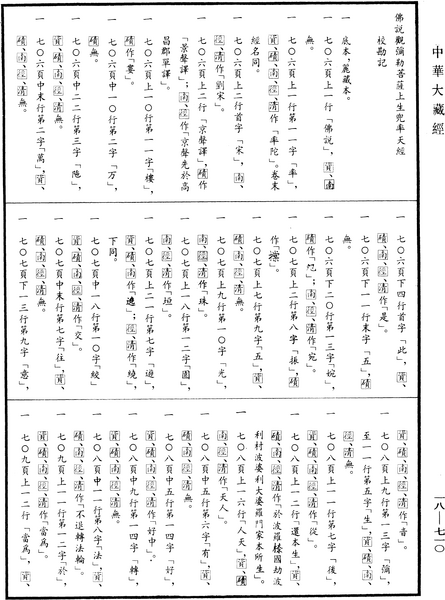 中華大藏經
佛說觀彌勒菩薩上生兜率天經
校勘記
一 底本,麗藏本。
一 七〇六頁上一行「佛說」,資、南
無。
一 七〇六頁上一行第一一字「率」,
資、磧、南、徑、清作「率陀」。卷末
經名同。
一 七〇六頁上二行首字「宋」,南、
徑、清作「劉宋」。
一 七〇六頁上二行「京聲譯」,磧作
「景聲譯」;南、徑作「京聲先於高
昌郡單譯」。
一 七〇六頁上一〇行第一一字「樓」,
磧作「婁」。
一 七〇六頁中一〇行第二字「万」,
磧無。
一 七〇六頁中二二行第三字「陁」,
資、磧、南、徑、清無。
一 七〇六頁中末行第二字「萬」,資、
磧、南、徑、清無。
一 七〇六頁下四行首字「此」,資、
磧、南、徑、清作「是」。
一 七〇六頁下一一行末字「五」,磧
無。
一 七〇六頁下二〇行第一三字「婉」,
磧作「」;南、徑、清作「宛」。
一 七〇七頁上二行第八字「振」,磧
作「」。
一 七〇七頁上七行第九字「五」,資、
磧、南、徑、清無。
一 七〇七頁上九行第一〇字「光」,
南、徑、清作「珠」。
一 七〇七頁上一八行第一二字「園」,
南、徑、清作「垣」。
一 七〇七頁上二一行第七字「遊」,
資、磧作「遶」;南、徑、清作「繞」,
下同。
一 七〇七頁中一八行第一〇字「絞」,
資、磧、南、徑、清作「交」。
一 七〇七頁中末行第七字「往」,資、
磧、南、徑、清無。
一 七〇七頁下一三行第九字「意」,
資、磧、南、徑、清作「音」。
一 七〇八頁上九行第一三字「彌」,
至一一行第五字「生」,資、磧、南、
徑、清無。
一 七〇八頁上一一行第七字「後」,
資、磧、南、徑、清作「從」。
一 七〇八頁上一二行「還本生」,資、
磧、南、徑、清作「於波羅㮈國劫波
利村波婆利大婆羅門家本所生」。
一 七〇八頁上一六行「人天」,資、磧、
南、徑、清作「天人」。
一 七〇八頁中五行第六字「有」,資、
磧、南、徑、清無。
一 七〇八頁中五行第一四字「好」,
資、磧、南、徑、清作「好中」。
一 七〇八頁中九行第一四字「轉」,
資、磧、南、徑、清無。
一 七〇八頁中一一行第八字「法」,資、
磧、南、徑、清作「不退轉法輪」。
一 七〇九頁上一一行第一二字「於」,
資、磧、南、徑、清作「當為」。
一 七〇九頁上一二行「當為」,資、
一八—七一〇